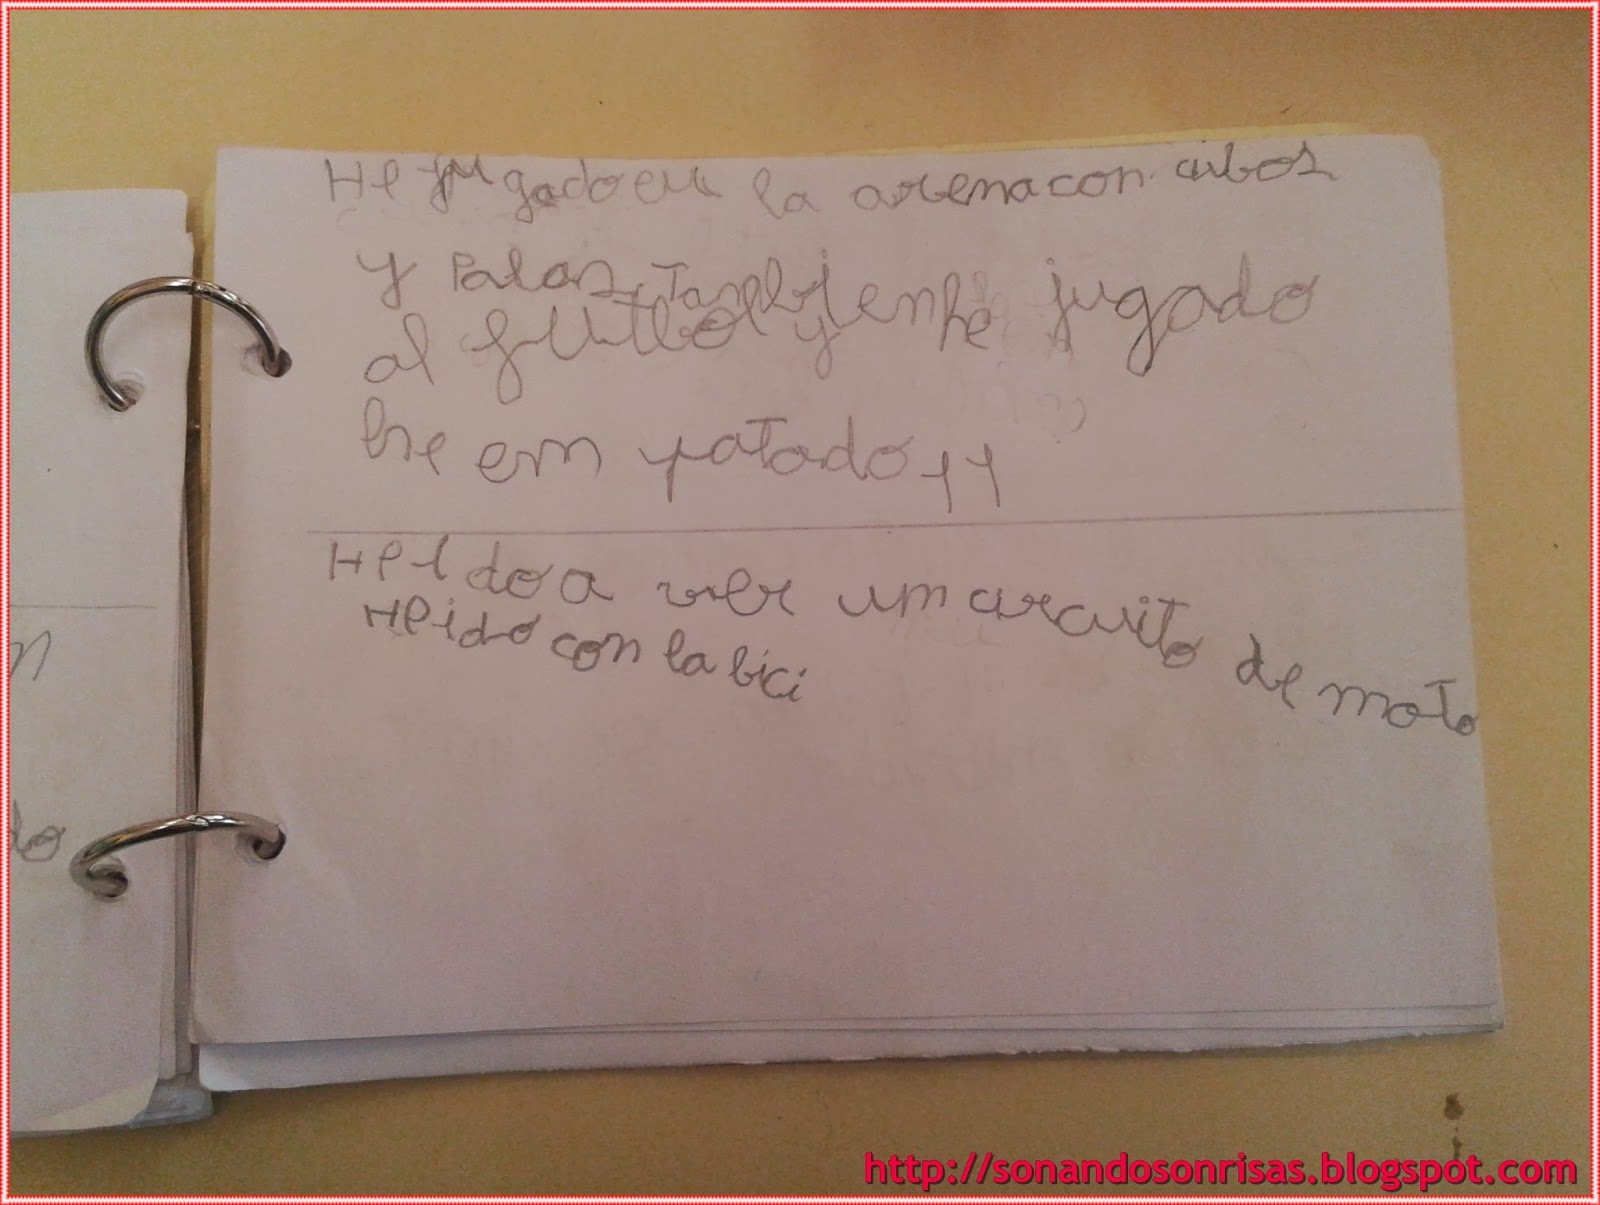 He jugado en la arena con cubos
y Palas. Tambien he jugado
al futbol y
he empatado 11
He Ido a ver um circuito de moto
He ido con la bici
n
do
http://sonandosonrisas.blogspot.com